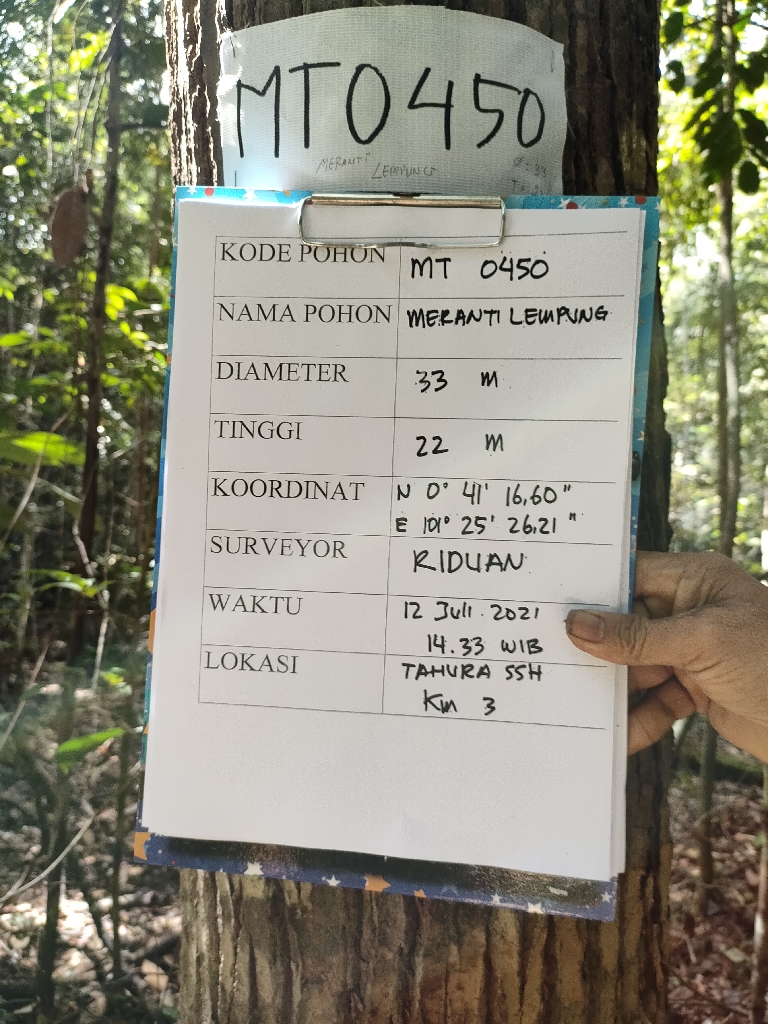 MT0450
MERANTI LEMPUNG
KODE POHON MT 0450
NAMA POHON MERANTI LEMPUNG
DIAMETER 33 M
TINGGI 22 M
KOORDINAT N 0° 41' 16,60"
E 101° 25' 26,21"
SURVEYOR RIDUAN
WAKTU 12 Juli 2021
14.33 WIB
LOKASI TAHURA SSH
Km 3